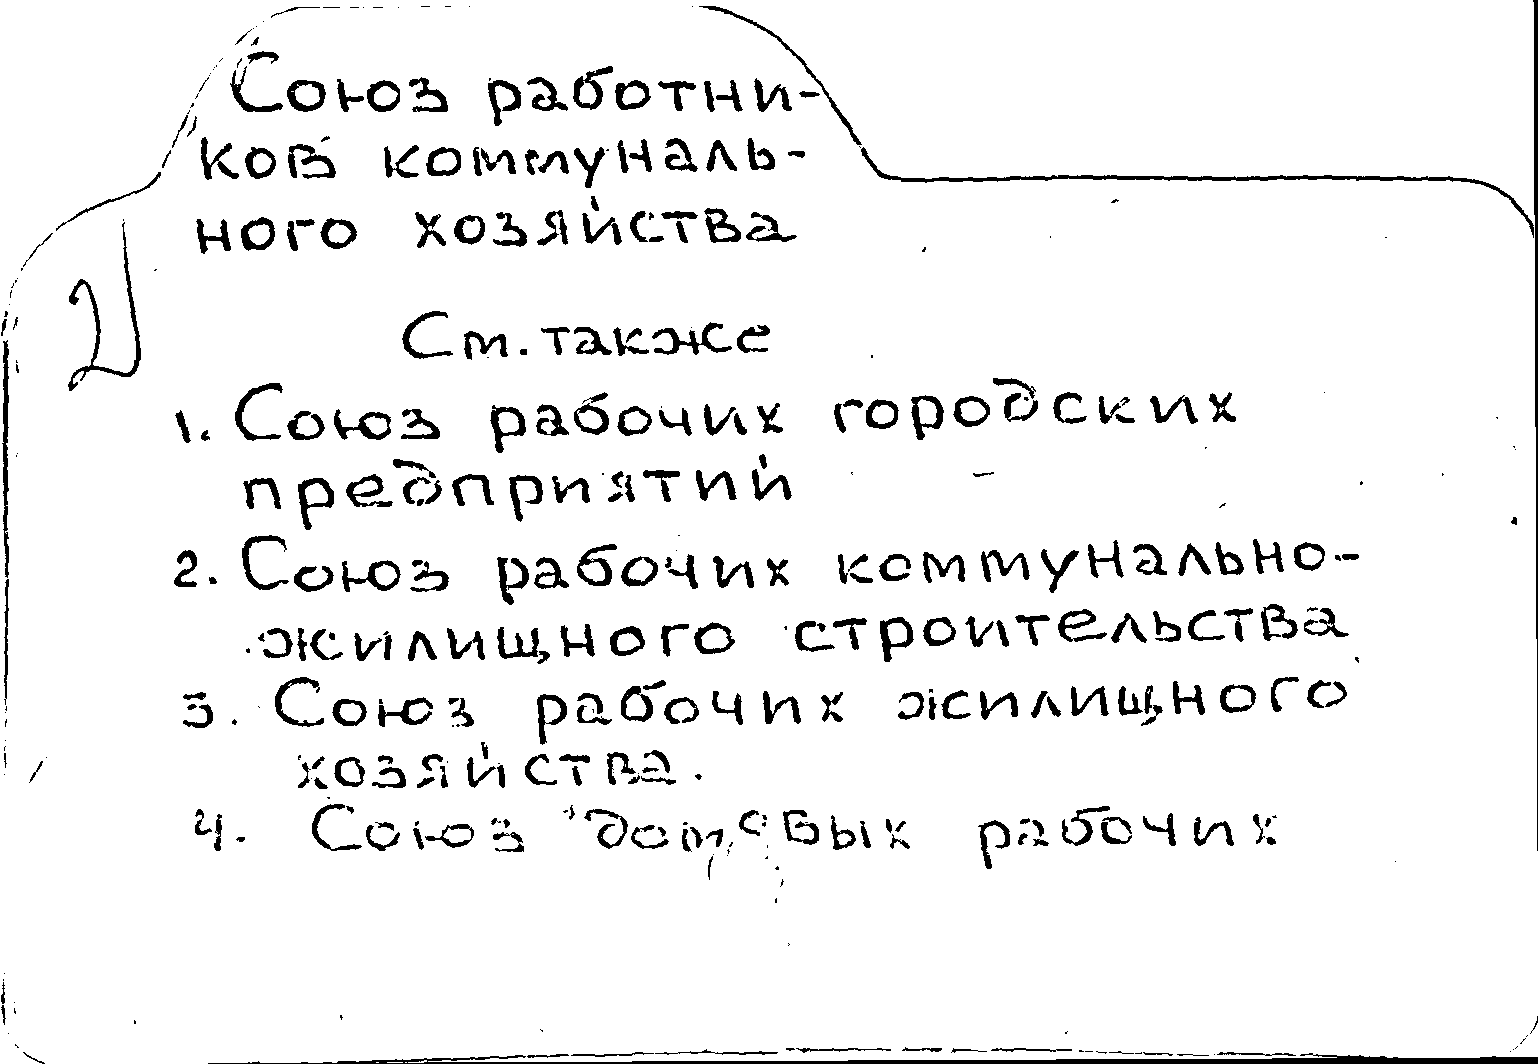 Союз работни-
ков коммуналь-
ного хозяйства
См. также
1. Союз рабочих городских
предприятий
2. Союз рабочих коммунально-
жилищного строительства
3. Союз рабочих жилищного
хозяйства.
4. Союз домовых рабочих